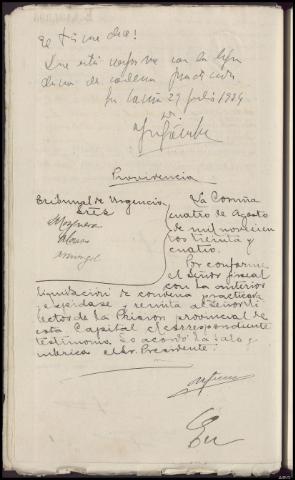 El Fiscal dice:
Que está conforme con la liqui
dación de condena practicada
La Coruña 27 Julio 1934
Providencia
Tribunal de Urgencia
Sres
Mosquera
La Coruña
cuatro de Agosto
de mil novecien
tos treinta y
cuatro.
Por conforme
el señor fiscal
con la anterior
liquidación de condena practicada
expídase y remita al Señor Di
rector de la Prision provincial de
esta Capital el correspondiente
testimonio. Lo acordó la Sala y
rubrica el Sr. Presidente.